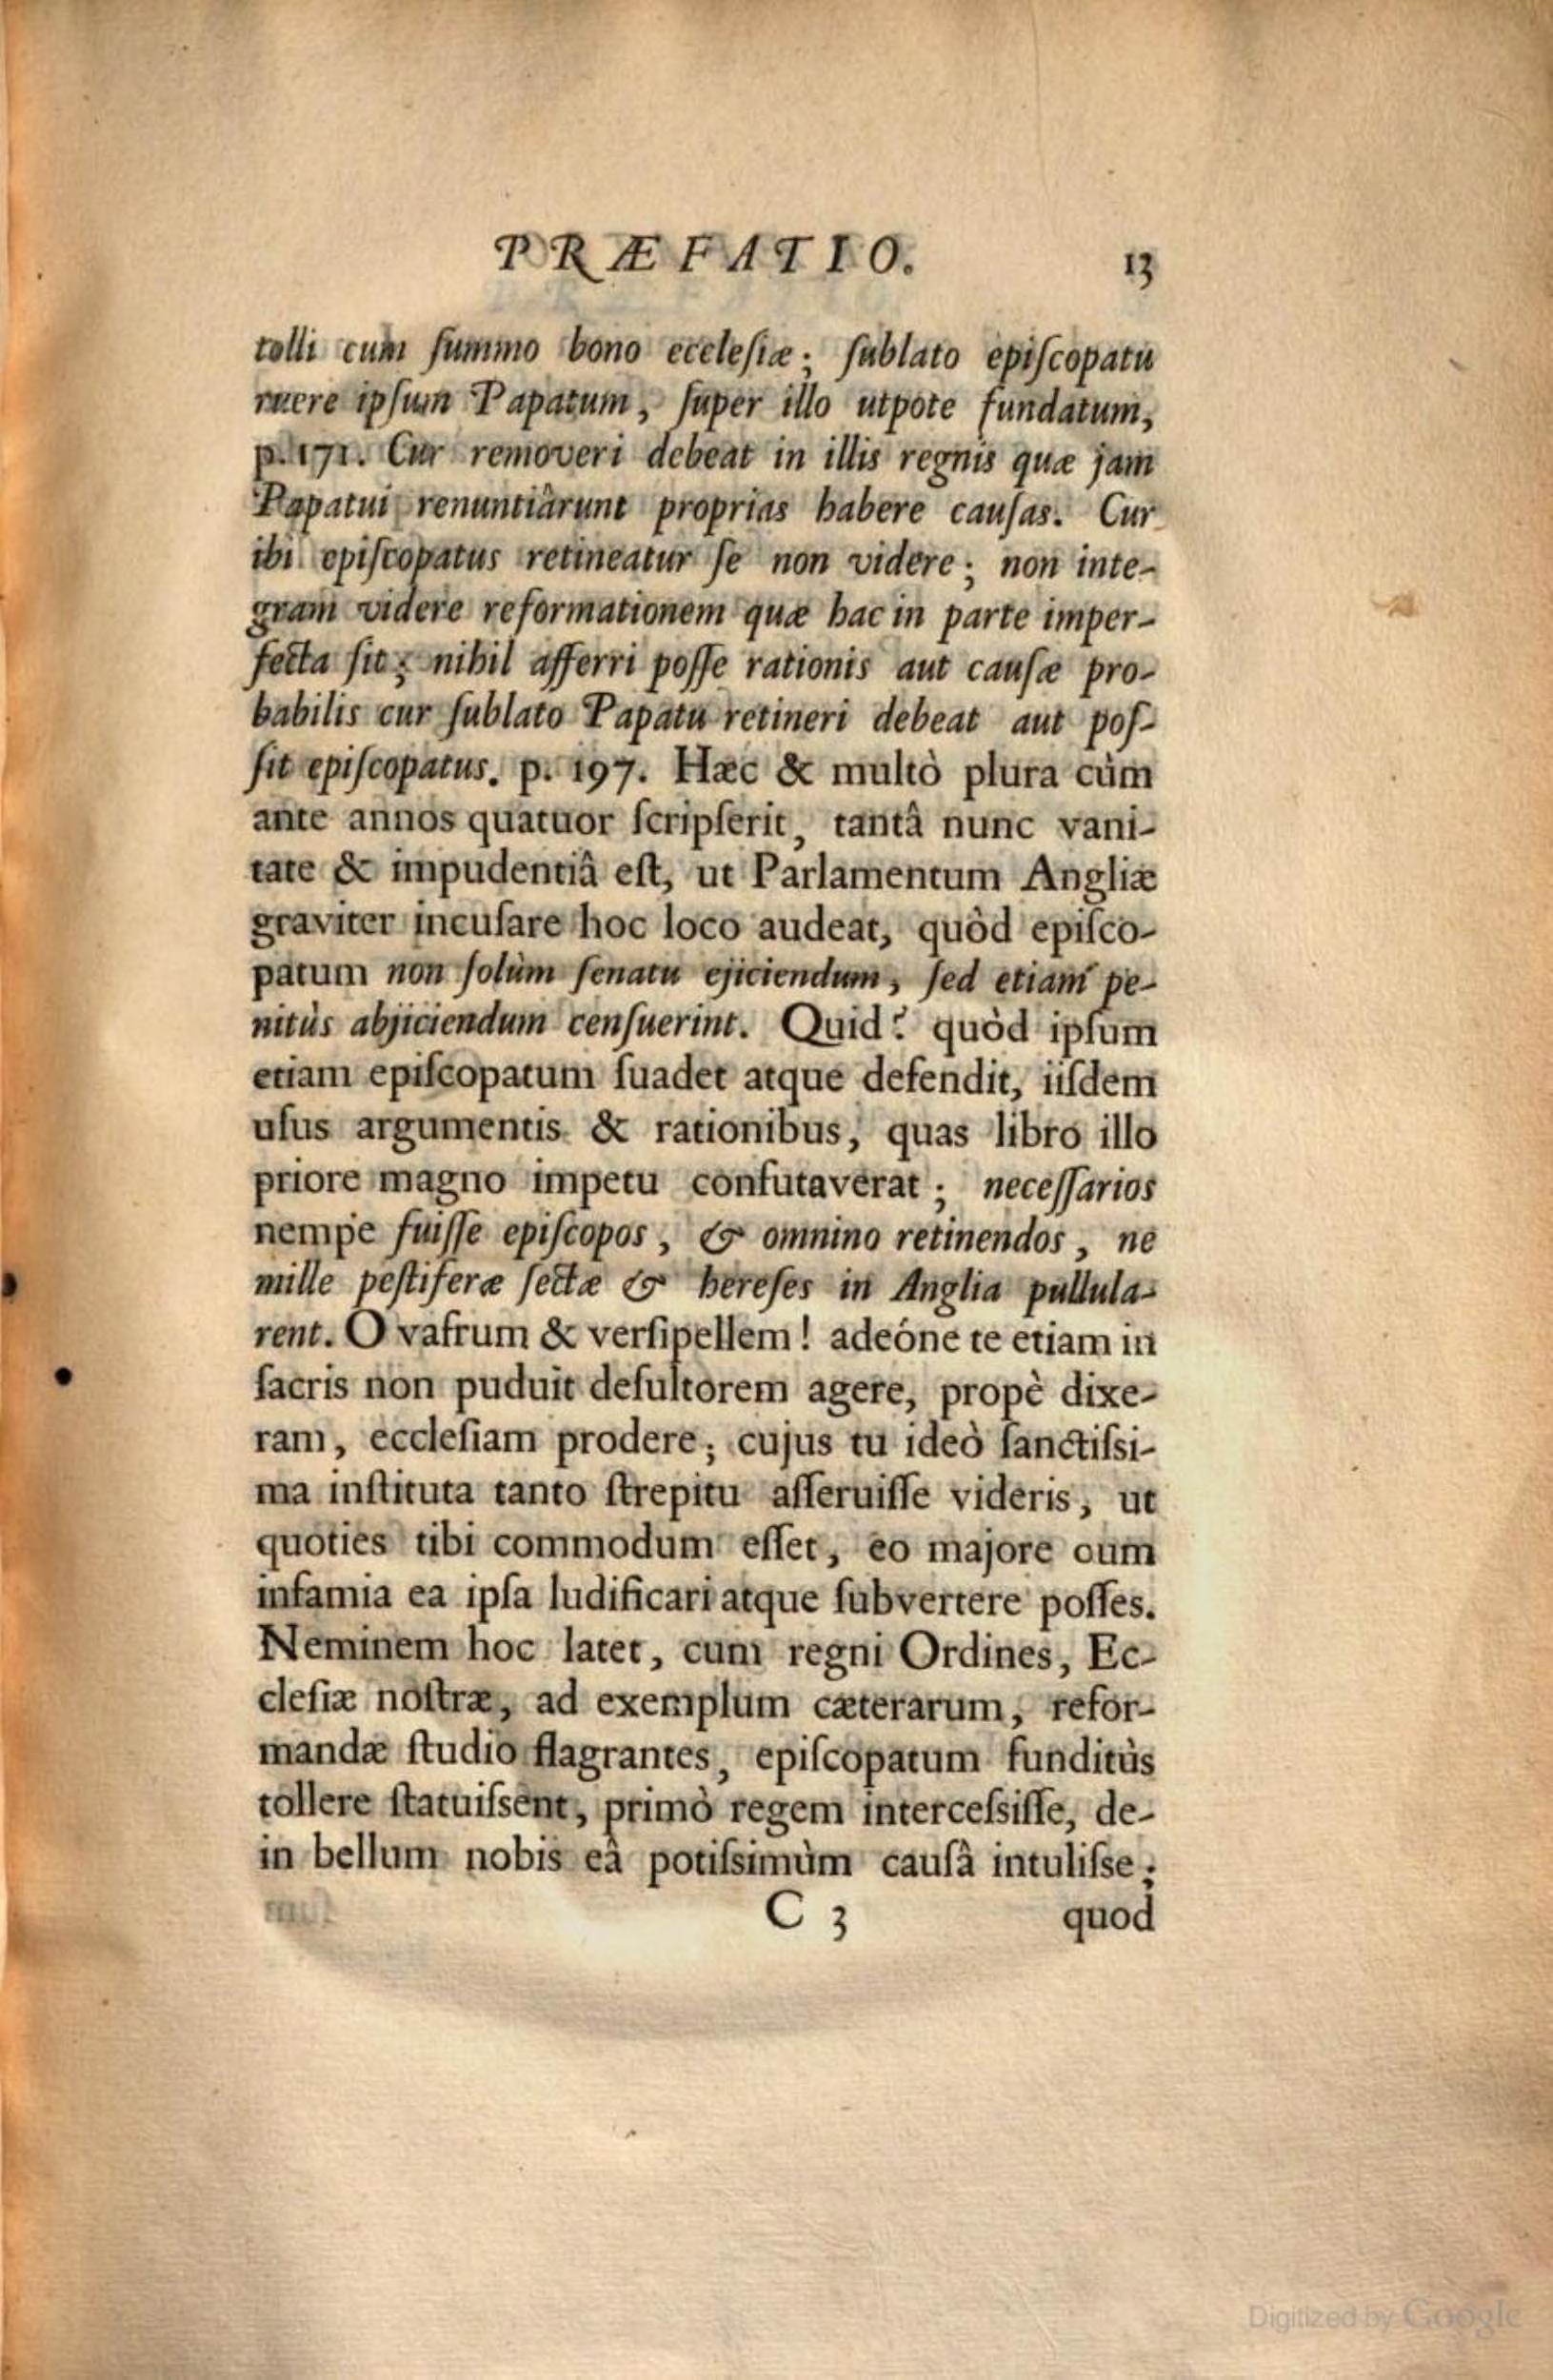 PRÆFATIO. 13
tolli cum ſummo bono eccleſiæ; ſublato epiſcopatu
ruere ipſum Papatum, ſuper illo utpote fundatum,
p. 171. Cur removeri debeat in illis regnis quæ jam
Papatui renuntiârunt proprias habere cauſas. Cur
ibi epiſcopatus retineatur ſe non videre; non inte-
gram videre reformationem quæ hac in parte imper-
fecta ſit; nihil afferri poſſe rationis aut cauſæ pro-
babilis cur ſublato Papatu retineri debeat aut poſ-
ſit epiſcopatus. p. 197. Hæc & multò plura cùm
ante annos quatuor ſcripſerit, tantâ nunc vani-
tate & impudentiâ eſt, ut Parlamentum Angliæ
graviter incuſare hoc loco audeat, quòd epiſco-
patum non ſolùm ſenatu ejiciendum, ſed etiam pe-
nitùs abjiciendum cenſuerint. Quid? quòd ipſum
etiam epiſcopatum ſuadet atque defendit, iiſdem
uſus argumentis & rationibus, quas libro illo
priore magno impetu confutaverat; neceſſarios
nempe fuiſſe epiſcopos, & omnino retinendos, ne
mille peſtiferæ ſectæ & hereſes in Anglia pullula-
rent. O vafrum & verſipellem! adeóne te etiam in
ſacris non puduit deſultorem agere, propè dixe-
ram, eccleſiam prodere; cujus tu ideò ſanctiſsi-
ma inſtituta tanto ſtrepitu aſſeruiſſe videris, ut
quoties tibi commodum eſſet, eo majore cum
infamia ea ipſa ludificari atque ſubvertere poſſes.
Neminem hoc latet, cum regni Ordines, Ec-
cleſiæ noſtræ, ad exemplum cæterarum, refor-
mandæ ſtudio flagrantes, epiſcopatum funditùs
tollere ſtatuiſsent, primò regem interceſsiſſe, de-
in bellum nobis eâ potiſsimùm cauſâ intuliſse;
C 3 quod
Digitized by Google